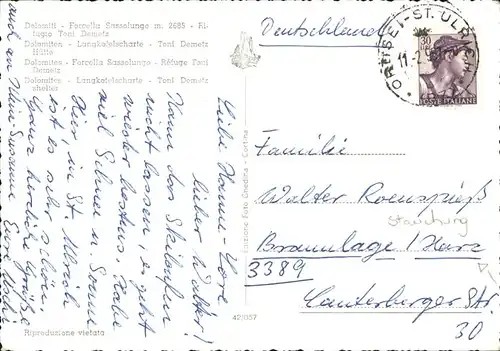 Dolomiti - Forcella Sassolungo m. 2685 - Ri-
fugio Toni Demetz
Dolomiten - Langkofelscharte - Toni Demetz
Hütte
Dolomites - Forcella Sassolungo - Réfuge Toni
Demetz
Dolomites - Langkofelscharte - Toni Demetz
shelter
Deutschland
ORTISEI - ST. ULR
11.2
30
POSTE ITALIANE
Liebe Hanne-Lore
lieber Walter!
Kann das Skilaufen
nicht lassen es geht
wieder bestens. Habe
viel Schnee u. Sonne
hier, in St. Ulrich
ist es sehr schön.
Ganz herzliche Grüße
auch an
Edizione Foto Ghedina - Cortina
Familie
Walter Roenspieß
Braunlage / Harz
3389
Lauterberger Str
30
42/057
Riproduzione vietata